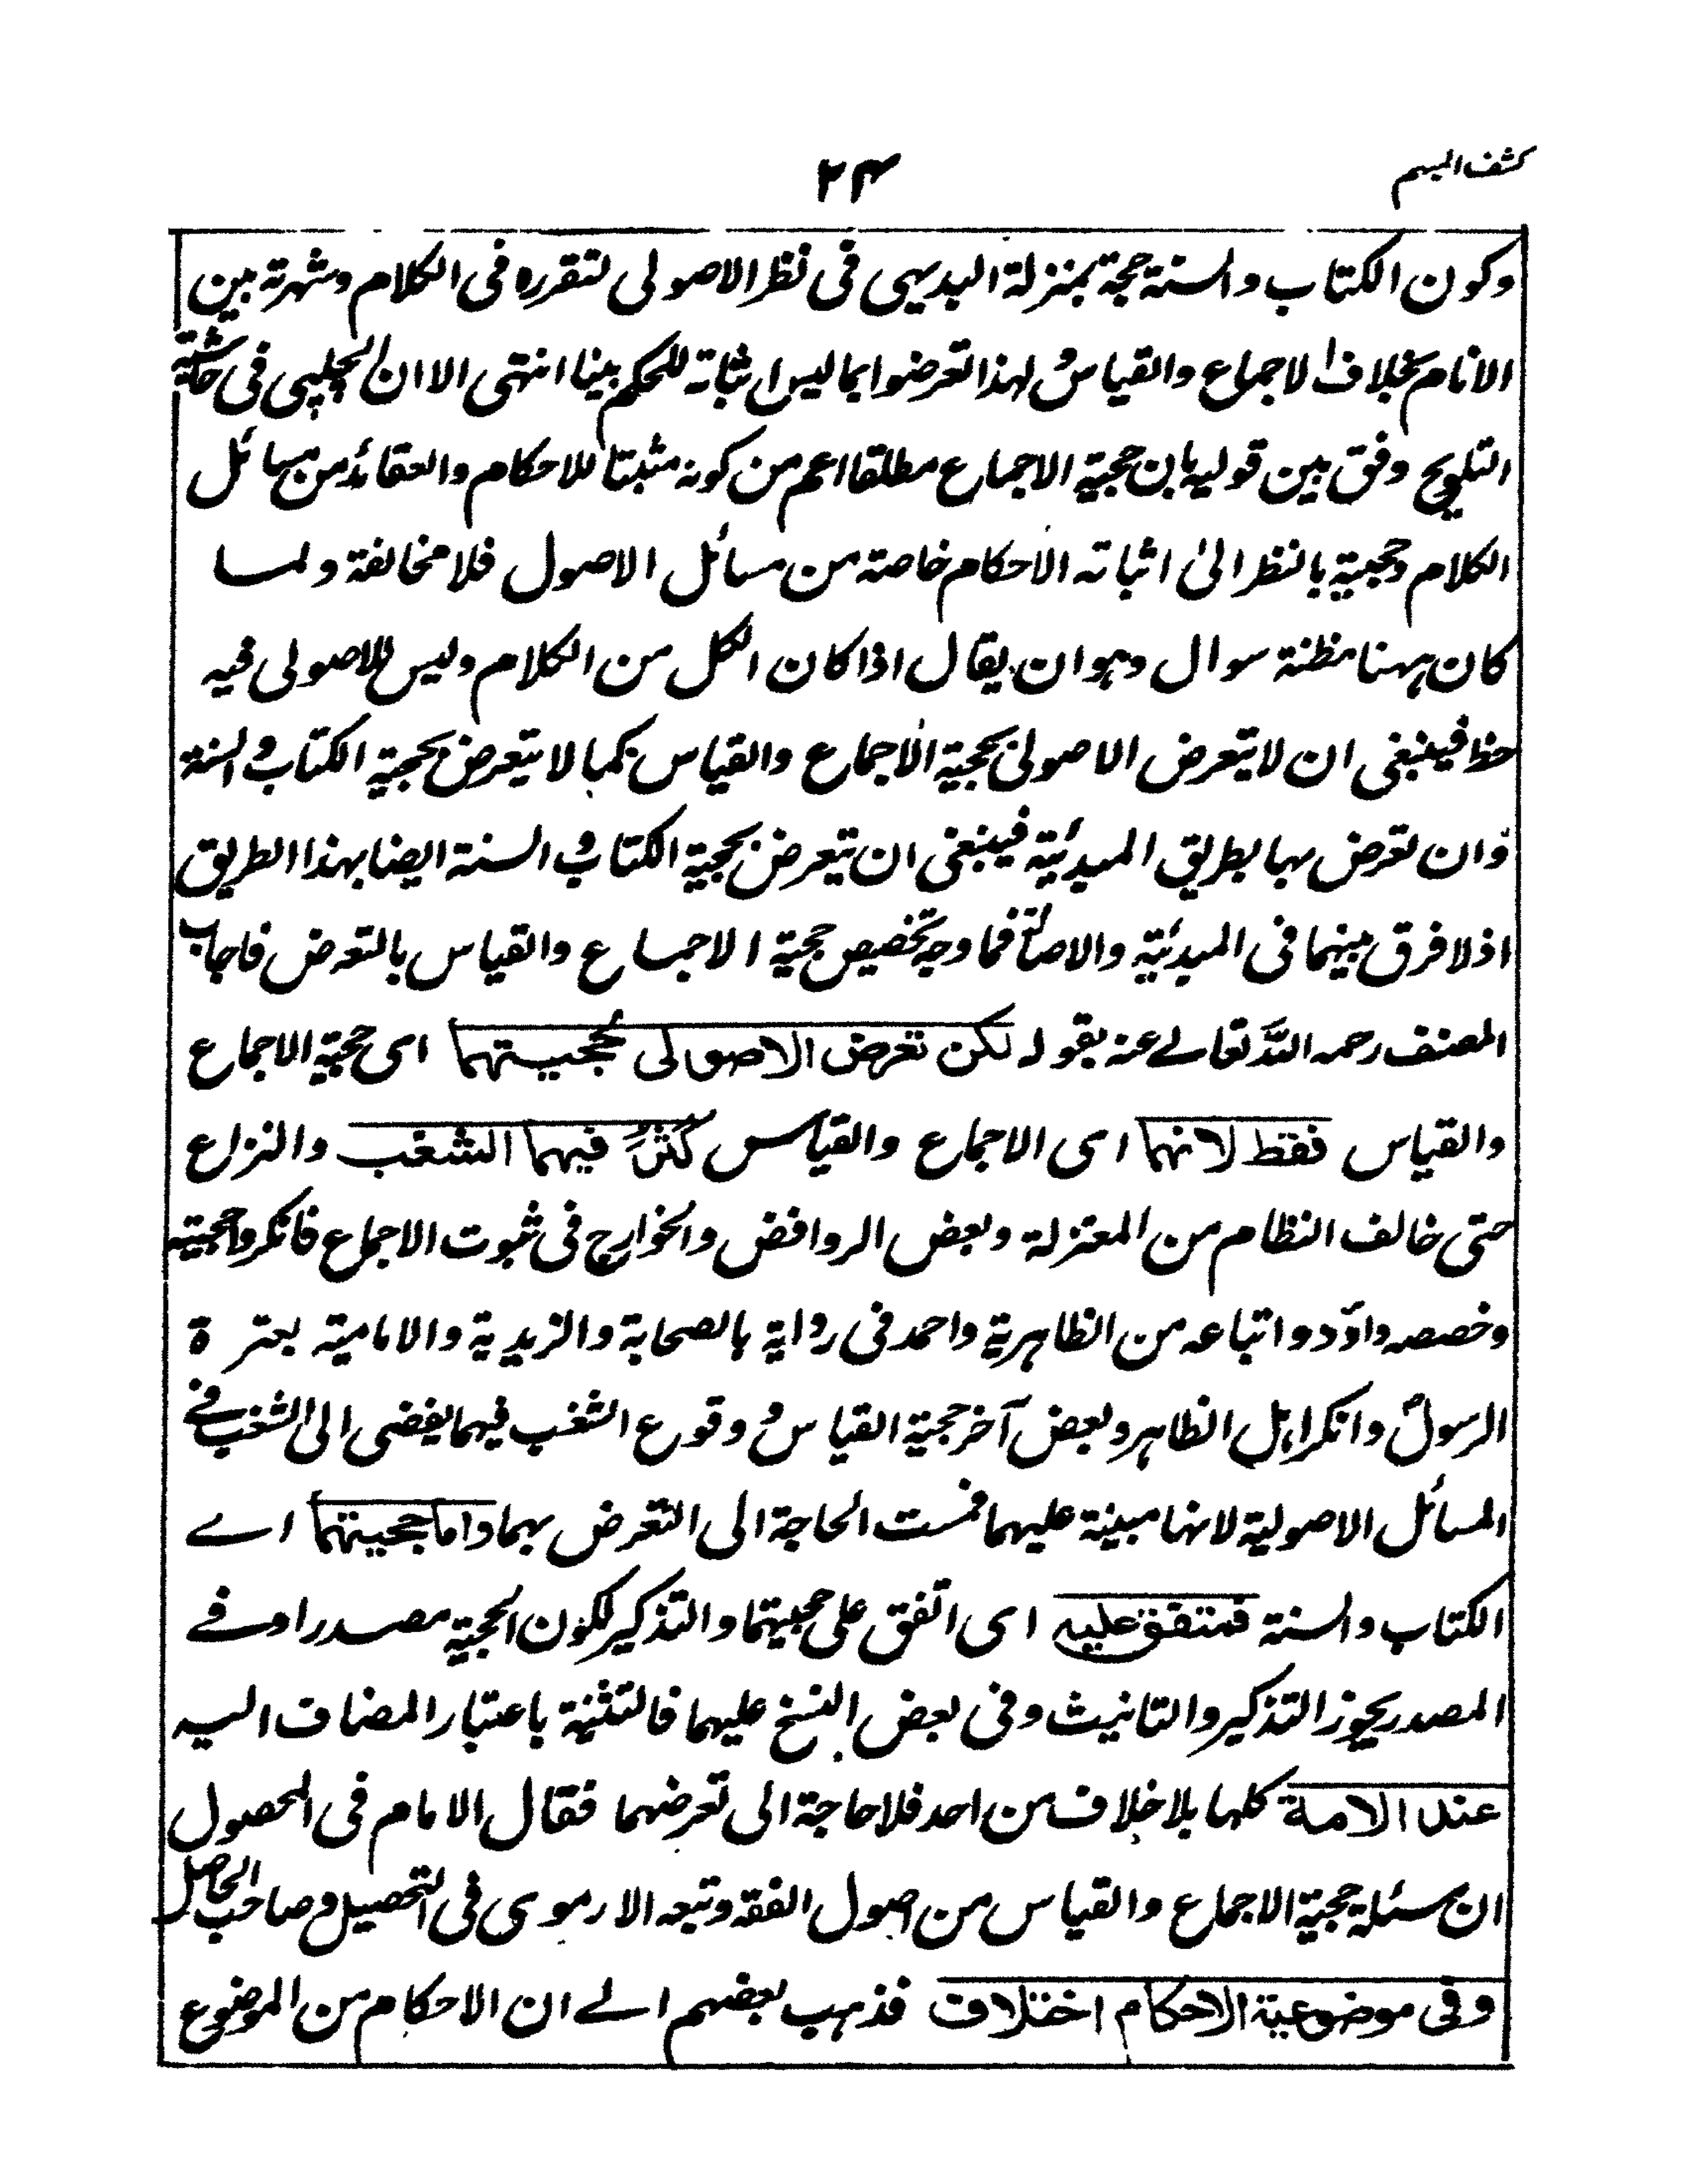 كشف المبهم
٢٤
وكون الكتاب والسنة حجة بمنزلة البديهي في نظر الاصولي لتقرره في الكلام وشهرته بين
الانام بخلاف الاجماع والقياس ولهذا تعرضوا بما ليس اثباته للحكم بينا انتهى الا ان الچلپي في حاشية
التلويح وفق بين قوليه بان حجية الاجماع مطلقا اعم من كونه مثبتا للاحكام والعقائد من مسائل
الكلام وحجيته بالنظر الى اثباته الاحكام خاصة من مسائل الاصول فلا مخالفة ولما
كان ههنا مظنة سوال وهو ان يقال اذا كان الكل من الكلام وليس للاصولي فيه
حظ فينبغي ان لا يتعرض الاصولي بحجية الاجماع والقياس كما لا يتعرض بحجية الكتاب والسنة
وان تعرض بها بطريق المبدئية فينبغي ان يتعرض بحجية الكتاب والسنة ايضا بهذا الطريق
اذ لا فرق بينهما في المبدئية والاصالة فما وجه تخصيص حجية الاجماع والقياس بالتعرض فاجاب
المصنف رحمه الله تعالى عنه بقوله لكن تعرض الاصولى بحجيتهما اى حجية الاجماع
والقياس فقط لانهما اى الاجماع والقياس كثر فيهما الشغب والنزاع
حتى خالف النظام من المعتزلة وبعض الروافض والخوارج في ثبوت الاجماع فانكروا حجيته
وخصصه داؤد واتباعه من الظاهرية واحمد في رواية بالصحابة والزيدية والامامية بعترة
الرسول وانكر اهل الظاهر وبعض آخر حجية القياس و وقوع الشغب فيهما يفضى الى الشغب في
المسائل الاصولية لانها مبينة عليهما فمست الحاجة الى التعرض بهما واما حجيتهما اے
الكتاب والسنة فمتفق عليه اى اتفق على حجيتهما والتذكير لكون الحجية مصدرا وفے
المصدر يجوز التذكير والتانيث وفي بعض النسخ عليهما فالتثنية باعتبار المضاف اليه
عند الامة كلها بلا خلاف من احد فلا حاجة الى تعرضهما فقال الامام في المحصول
ان مسئلة حجية الاجماع والقياس من اصول الفقه وتبعه الارموى في التحصيل وصاحب الحاصل
وفى موضوعية الاحكام اختلاف فذهب بعضهم الے ان الاحكام من الموضوع